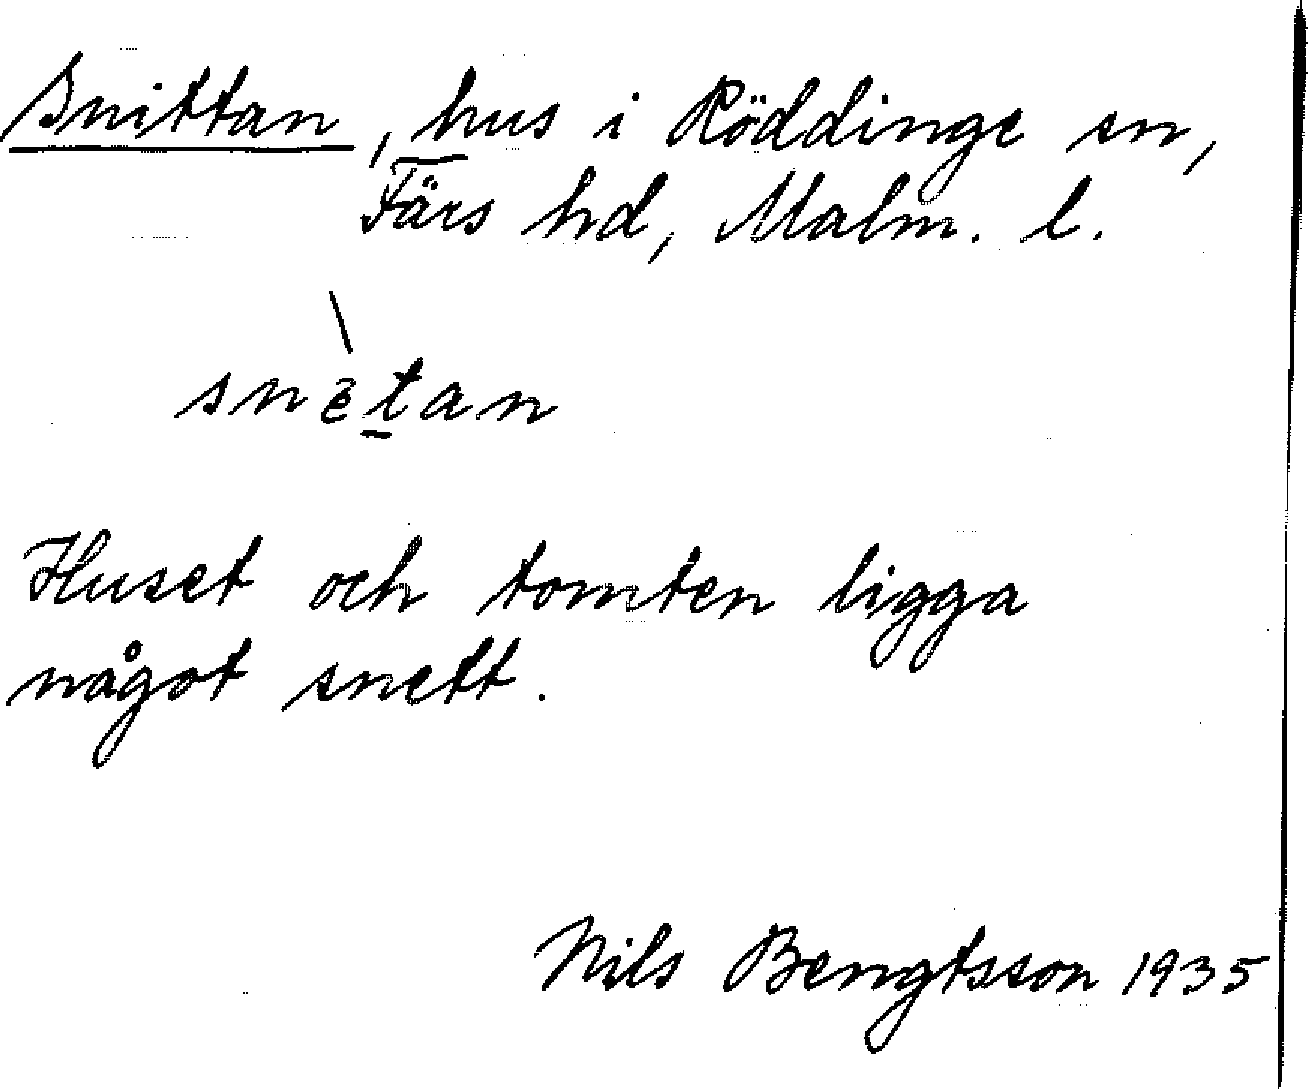 Snittan, hus i Röddinge sn,
Färs hd, Malm. l.
snètan
Huset och tomten ligga
något snett.
Nils Bengtsson 1935